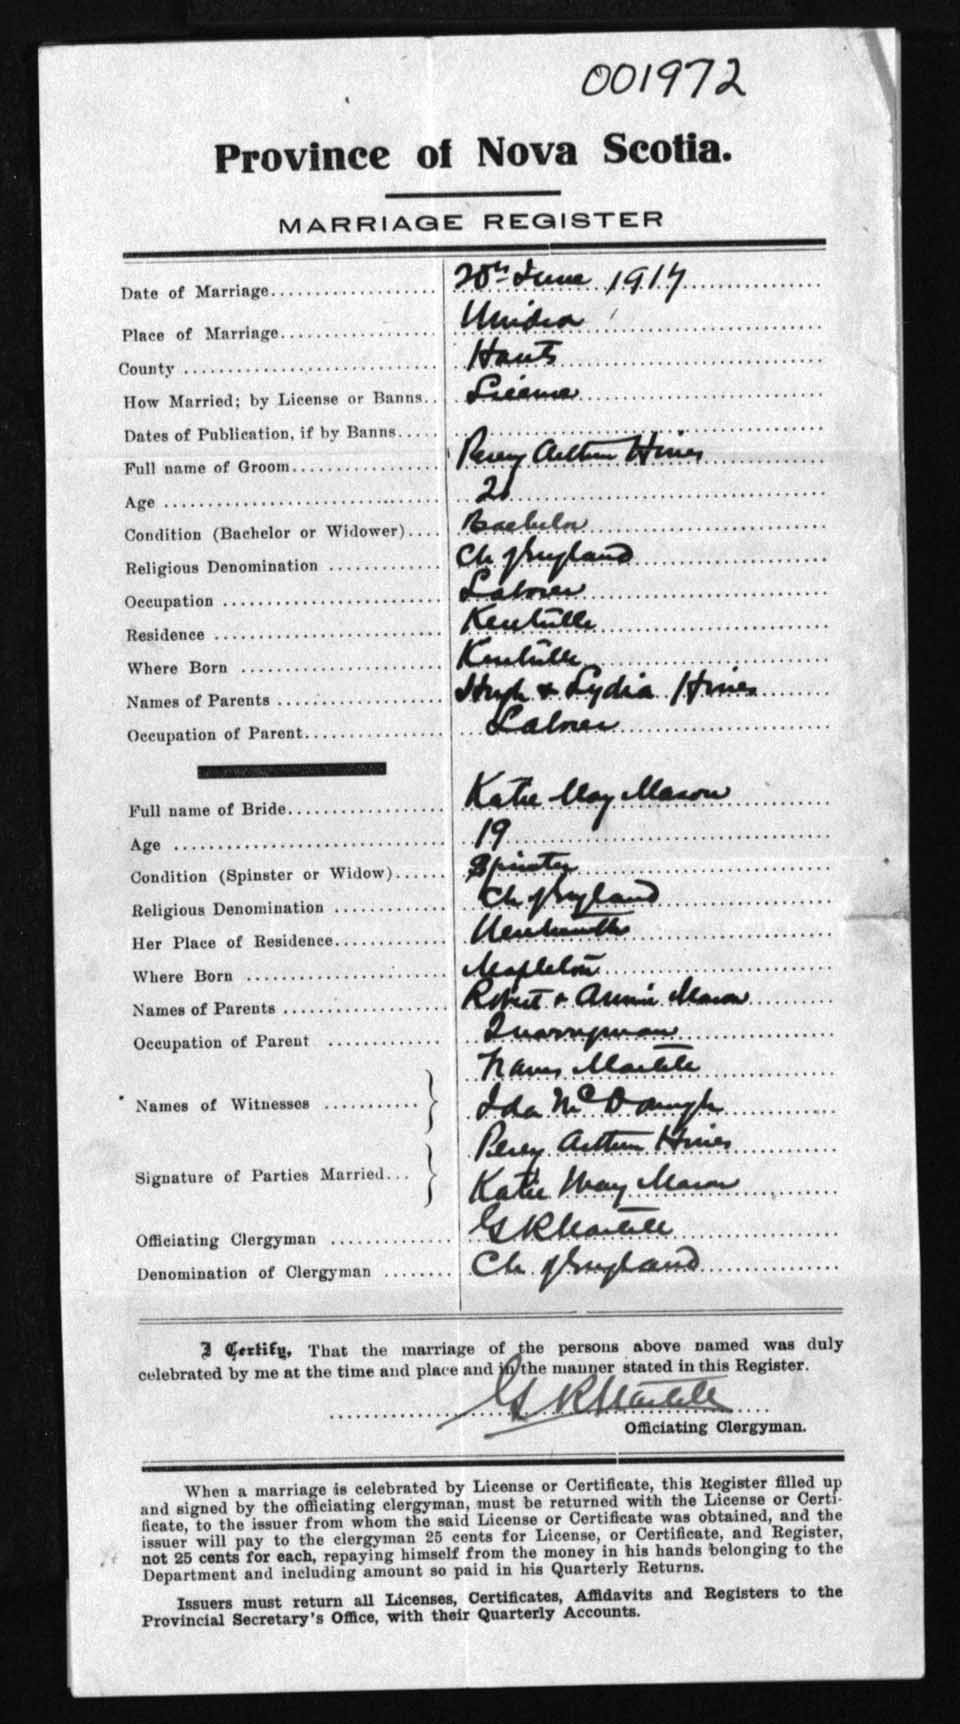 001972
Province of Nova Scotia.
MARRIAGE REGISTER
Date of Marriage 20th June 1917
Place of Marriage Windsor
County Hants
How Married; by License or Banns License
Dates of Publication, if by Banns
Full name of Groom Percy Arthur Hines
Age 21
Condition (Bachelor or Widower) Bachelor
Religious Denomination Ch of England
Occupation Laborer
Residence Kentville
Where Born Kentville
Names of Parents Hugh & Lydia Hines
Occupation of Parent Laborer
Full name of Bride Katie May Mason
Age 19
Condition (Spinster or Widow) Spinster
Religious Denomination Ch of England
Her Place of Residence
Where Born Mapleton
Names of Parents Robert & Annie Mason
Occupation of Parent Quarryman
Martell
Names of Witnesses Ida McDonugh
Percy Arthur Hines
Signature of Parties Married Katie May Mason
Officiating Clergyman G R Martell
Denomination of Clergyman Ch of England
I Certify, That the marriage of the persons above named was duly
celebrated by me at the time and place and in the manner stated in this Register.
G R Martell
Officiating Clergyman.
When a marriage is celebrated by License or Certificate, this Register filled up
and signed by the officiating clergyman, must be returned with the License or Certi-
ficate, to the issuer from whom the said License or Certificate was obtained, and the
issuer will pay to the clergyman 25 cents for License, or Certificate, and Register,
not 25 cents for each, repaying himself from the money in his hands belonging to the
Department and including amount so paid in his Quarterly Returns.
Issuers must return all Licenses, Certificates, Affidavits and Registers to the
Provincial Secretary's Office, with their Quarterly Accounts.